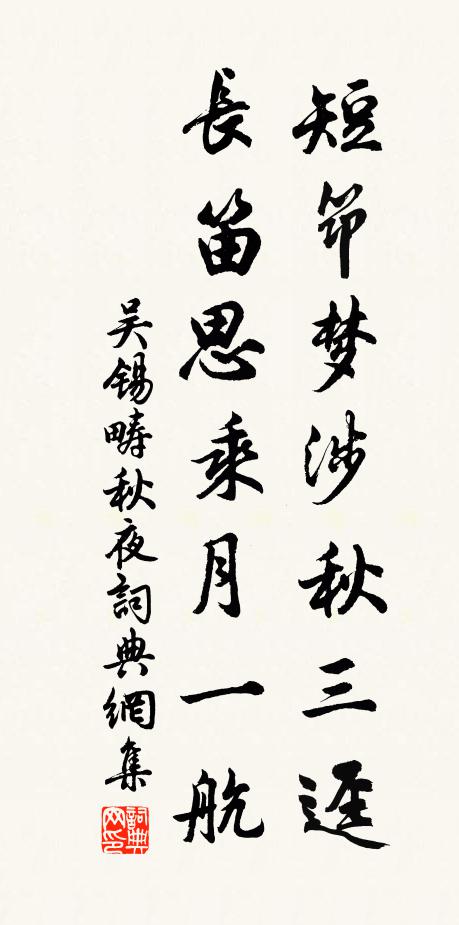 短筇梦涉秋三逕
長笛思乘月一航
吴錫畴秋夜詞典網集
詞典网印